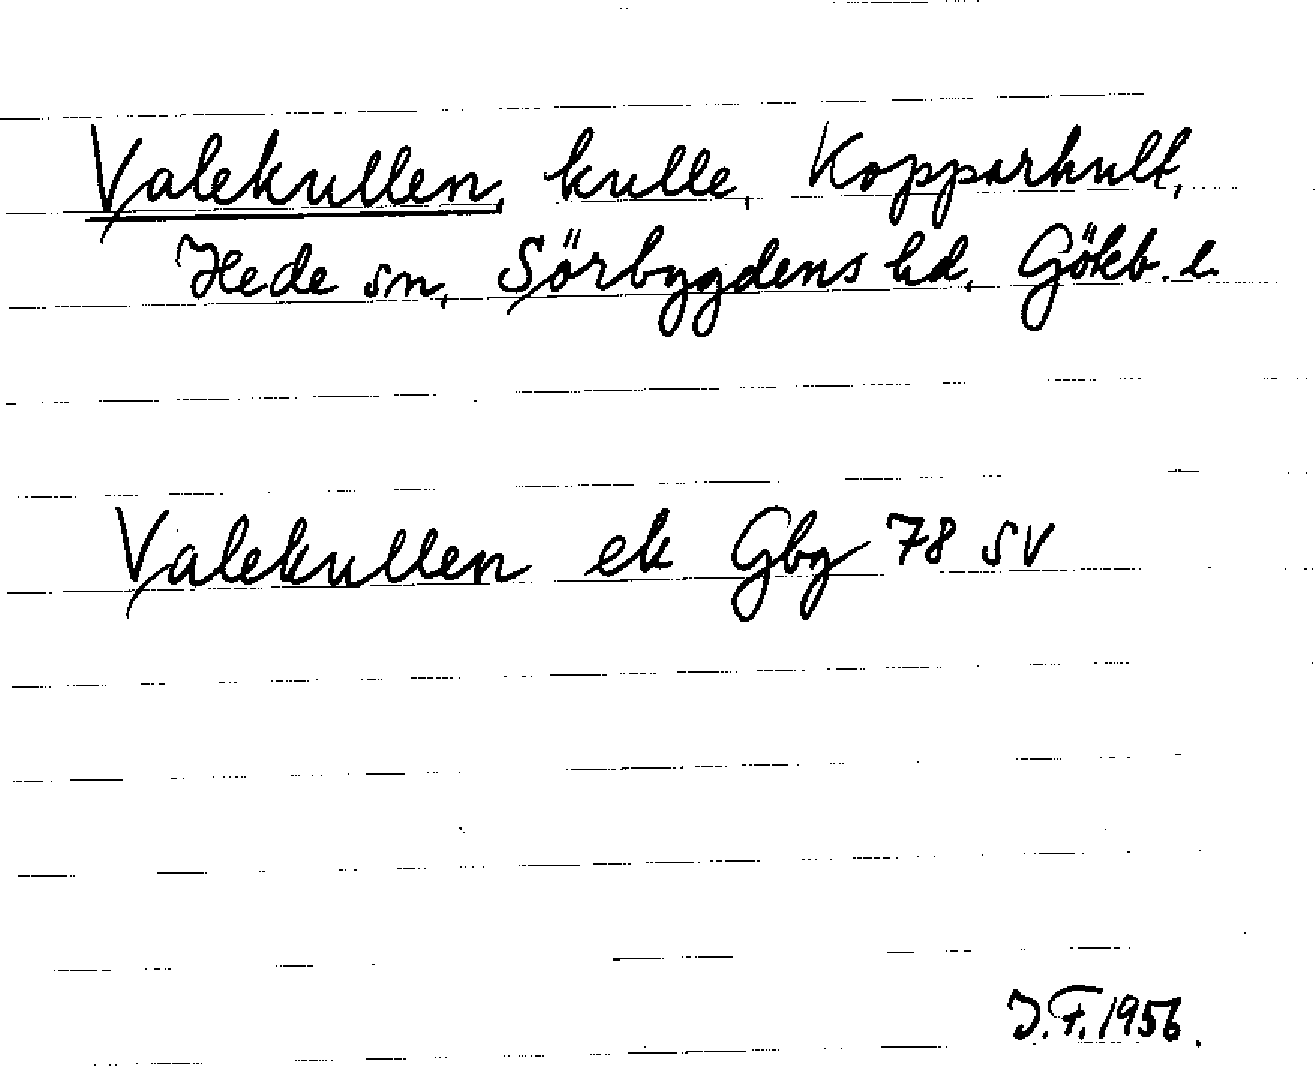 Valekullen, kulle, Kopparhult,
Hede sn, Sörbygdens hd, Gökb. l.
Valekullen ek Gbg 78 SV
J.F. 1956.